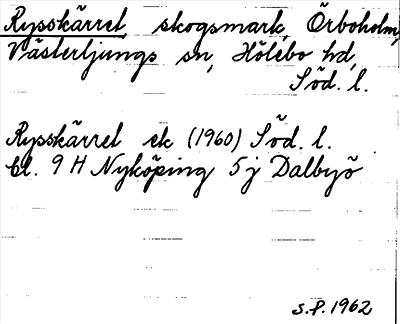 Rysskärret skogsmark, Örboholm,
Västerljungs sn, Hölebo hd,
Söd. l.
Rysskärret ek (1960) Söd. l.
bl. 9 H Nyköping 5 j Dalbyö
S.P. 1962